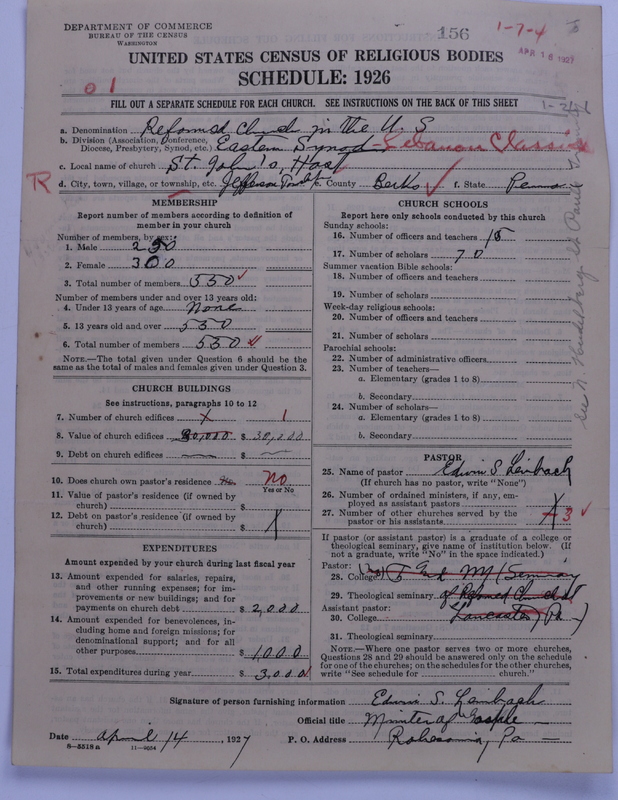 DEPARTMENT OF COMMERCE
BUREAU OF THE CENSUS
WASHINGTON
156
1-7-4
APR 16 1927
UNITED STATES CENSUS OF RELIGIOUS BODIES
SCHEDULE: 1926
0 1
FILL OUT A SEPARATE SCHEDULE FOR EACH CHURCH. SEE INSTRUCTIONS ON THE BACK OF THIS SHEET
a. Denomination Reformed Church in the U.S
b. Division (Association, Conference, Diocese, Presbytery, Synod, etc.) Eastern Synod - Lebanon Classis
c. Local name of church St. John's, Host
R d. City, town, village, or township, etc. Jefferson e. County Berks f. State Penna
MEMBERSHIP
Report number of members according to definition of
member in your church
Number of members, by sex:
1. Male 250
2. Female 300
3. Total number of members 550
Number of members under and over 13 years old:
4. Under 13 years of age None
5. 13 years old and over 550
6. Total number of members 550
NOTE.—The total given under Question 6 should be the
same as the total of males and females given under Question 3.
CHURCH BUILDINGS
See instructions, paragraphs 10 to 12
7. Number of church edifices 1
8. Value of church edifices 30,000 $ 30,000
9. Debt on church edifices $
10. Does church own pastor's residence No No
Yes or No
11. Value of pastor's residence (if owned by
church) $
12. Debt on pastor's residence (if owned by
church) $
EXPENDITURES
Amount expended by your church during last fiscal year
13. Amount expended for salaries, repairs,
and other running expenses; for im-
provements or new buildings; and for
payments on church debt $ 2,000
14. Amount expended for benevolences, in-
cluding home and foreign missions; for
denominational support; and for all
other purposes $ 1000
15. Total expenditures during year $ 3,000
CHURCH SCHOOLS
Report here only schools conducted by this church
Sunday schools:
16. Number of officers and teachers 15
17. Number of scholars 70
Summer vacation Bible schools:
18. Number of officers and teachers
19. Number of scholars
Week-day religious schools:
20. Number of officers and teachers
21. Number of scholars
Parochial schools:
22. Number of administrative officers
23. Number of teachers—
a. Elementary (grades 1 to 8)
b. Secondary
24. Number of scholars—
a. Elementary (grades 1 to 8)
b. Secondary
PASTOR
25. Name of pastor Edwin S. Leinbach
(If church has no pastor, write "None")
26. Number of ordained ministers, if any, em-
ployed as assistant pastors
27. Number of other churches served by the
pastor or his assistants 3
If pastor (or assistant pastor) is a graduate of a college or
theological seminary, give name of institution below. (If
not a graduate, write "No" in the space indicated.)
Pastor:
28. College F and M (Seminary
29. Theological seminary of Reformed Church at
Assistant pastor:
30. College Lancaster, Pa)
31. Theological seminary
NOTE.—Where one pastor serves two or more churches,
Questions 28 and 29 should be answered only on the schedule
for one of the churches; on the schedules for the other churches,
write "See schedule for church."
Signature of person furnishing information Edwin S. Leinbach
Official title Minister of Gospel
Date April 14, 1927 P. O. Address Robesonia, Pa
8-5518a 11-9554